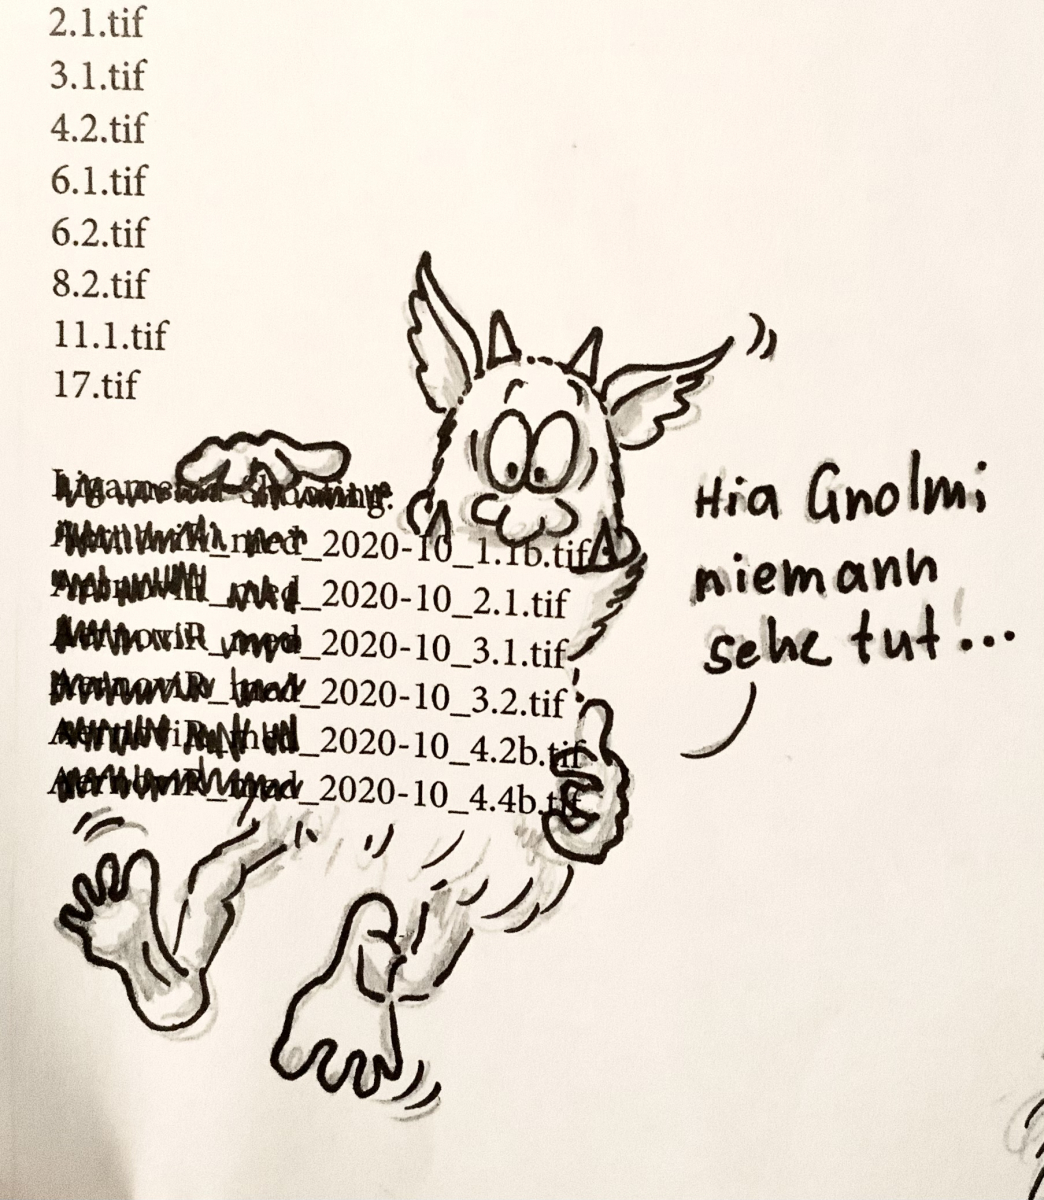 2.1.tif
3.1.tif
4.2.tif
6.1.tif
6.2.tif
8.2.tif
11.1.tif
17.tif
_2020-10_1.1b.tif
_2020-10_2.1.tif
_2020-10_3.1.tif
_2020-10_3.2.tif
_2020-10_4.2b.tif
_2020-10_4.4b.tif
Hia Gnolmi
niemann
sehe tut!...